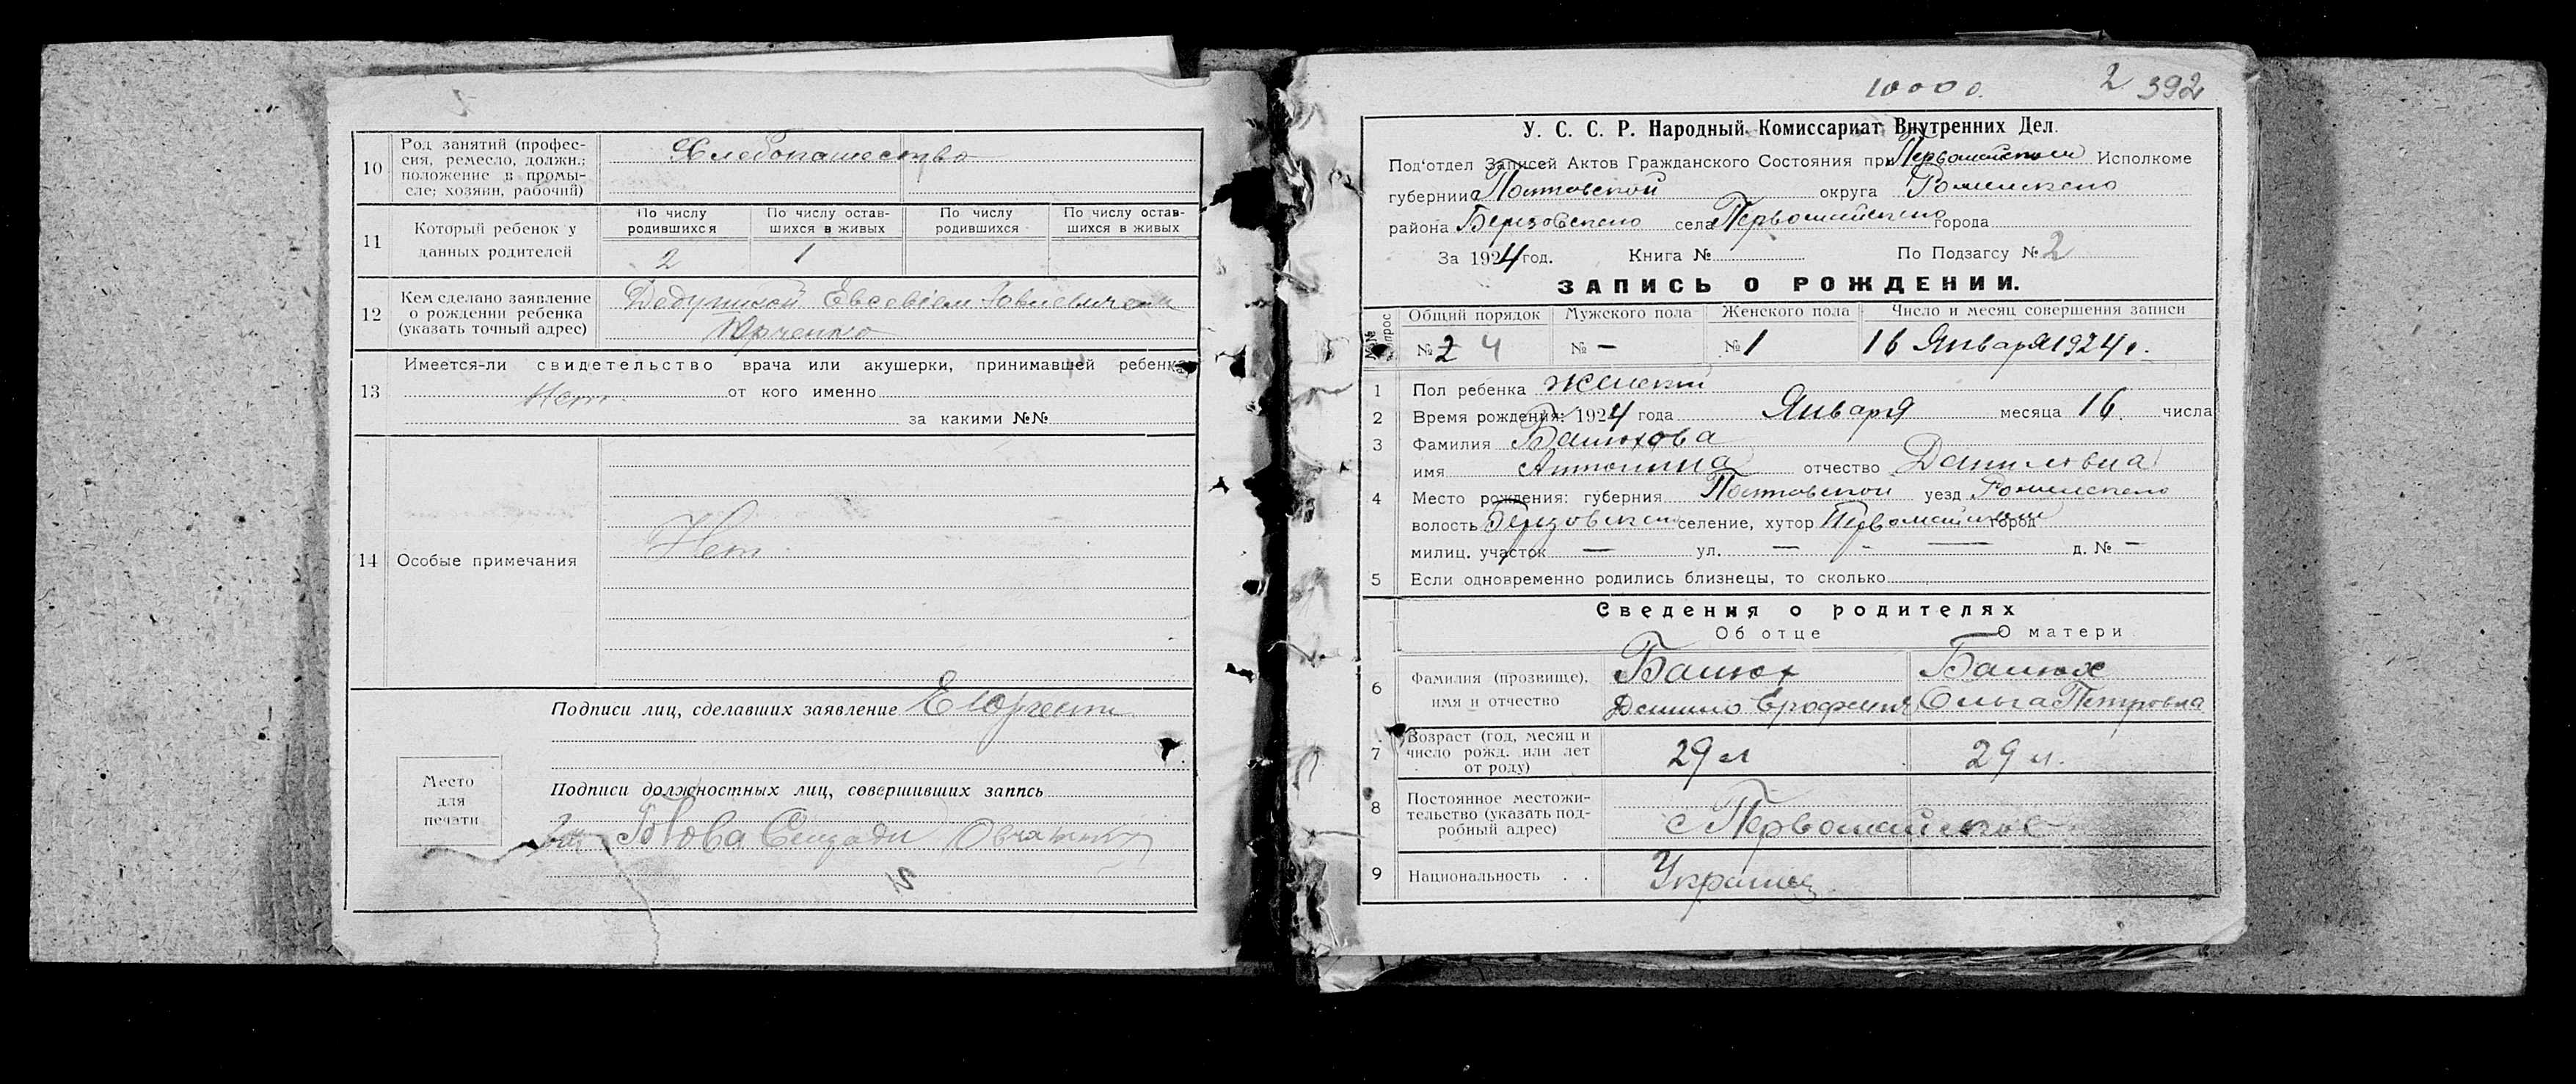 10 Род занятий (профес-
сия, ремесло, должн.;
положение в промы-
сле; хозяин, рабочий)
Хлебопашество
11 Который ребенок у
данных родителей
По числу родившихся
По числу остав-
шихся в живых
По числу родившихся
По числу остав-
шихся в живых
2 1
12 Кем сделано заявление
о рождении ребенка
(указать точный адрес)
Юрченко
13 Имеется-ли свидетельство врача или акушерки, принимавшей ребенка
Нет от кого именно
за какими №№
14 Особые примечания
Нет
Подписи лиц, сделавших заявление ЕЮрченко
Место
для
печати
Подписи должностных лиц, совершивших запись
Голова Сельради
10000. 2 392
У. С. С. Р. Народный Комиссариат Внутренних Дел.
Под'отдел Записей Актов Гражданского Состояния при Первомайском Исполкоме
губернии Полтавской округа Роменского
района Березовского села Первомайского города
За 1924 год. Книга № По Подзагсу № 2
ЗАПИСЬ О РОЖДЕНИИ.
№№ вопрос
Общий порядок Мужского пола Женского пола Число и месяц совершения записи
№ 2 4 № — № 1 16 Января 1924 г.
1 Пол ребенка женский
2 Время рождения: 1924 года Января месяца 16 числа
3 Фамилия Башюхова
имя Антонина отчество Даниловна
4 Место рождения: губерния Полтавской уезд Роменского
волость Березовского селение, хутор Первомайском город
милиц. участок — ул. — — д. № —
5 Если одновременно родились близнецы, то сколько
Сведения о родителях
Об отце О матери
6 Фамилия (прозвище),
имя и отчество
Башюх Башюх
Данило Ольга Петровна
7 Возраст (год, месяц и
число рожд. или лет
от роду)
29 л 29 л.
8 Постоянное местожи-
тельство (указать под-
робный адрес)
с Первомайское
9 Национальность . .
Украинец